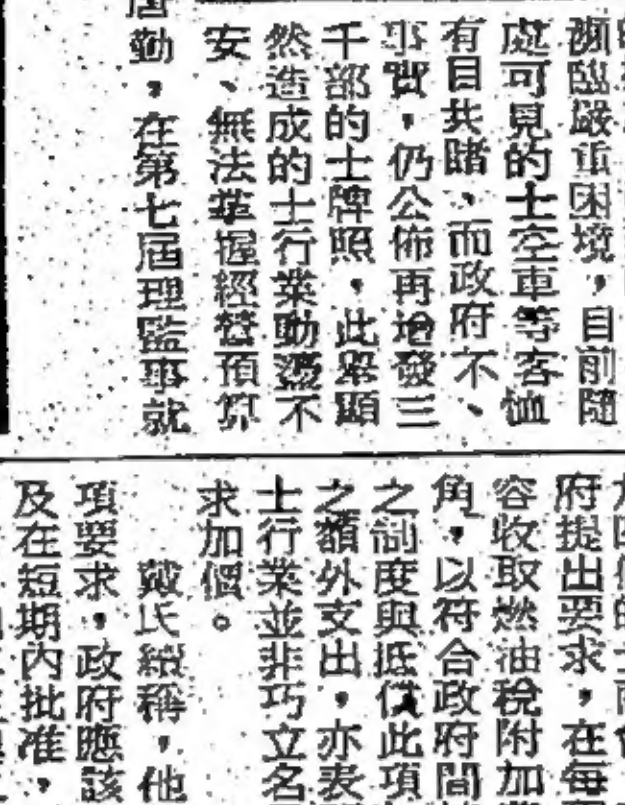 瀕臨嚴重困境，目前隨
處可見的士空車等客恤
有目共睹、而政府不、
事實，仍公佈再增發三
千部的士牌照，此舉顯
然造成的士行業動盪不
安、無法掌握經營預算
勤，在第七屆理監事就
府提出要求，在每
容收取燃油稅附加
角，以符合政府間
之制度與抵償此項
之額外支出，亦表
士行業並非巧立名
求加價。
戴氏續稱，他
項要求，政府應該
及在短期內批准，